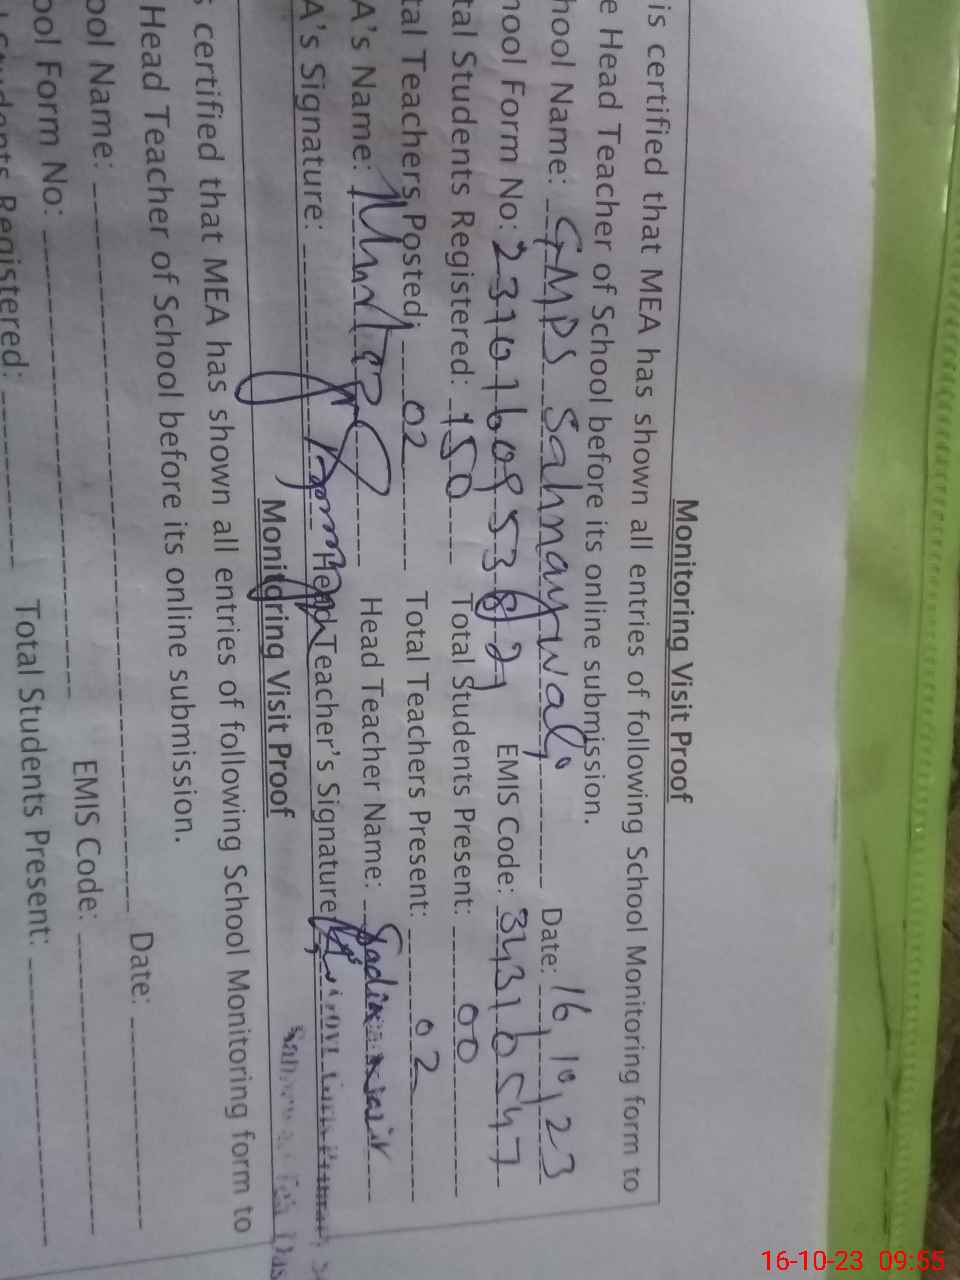 Monitoring Visit Proof
is certified that MEA has shown all entries of following School Monitoring form to
e Head Teacher of School before its online submission.
hool Name: GMPS Sahnaywali Date: 16,10,23
hool Form No: EMIS Code: 34316547
tal Students Registered: 150 Total Students Present: 00
tal Teachers Posted: 02 Total Teachers Present: 02
A's Name: Mumtaz Head Teacher Name: Sadia
A's Signature: Head Teacher's Signature
Monitoring Visit Proof
s certified that MEA has shown all entries of following School Monitoring form to
Head Teacher of School before its online submission.
ool Name: Date:
ool Form No: EMIS Code:
Students Registered: Total Students Present:
16-10-23 09:55